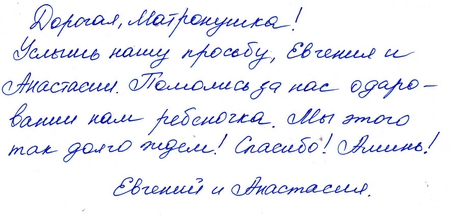 Дорогая, Матронушка!
Услышь нашу просьбу, Евгения и
Анастасии. Помолись за нас одаро-
вании нам ребёночка. Мы этого
так долго ждём! Спасибо! Аминь!
Евгений и Анастасия.